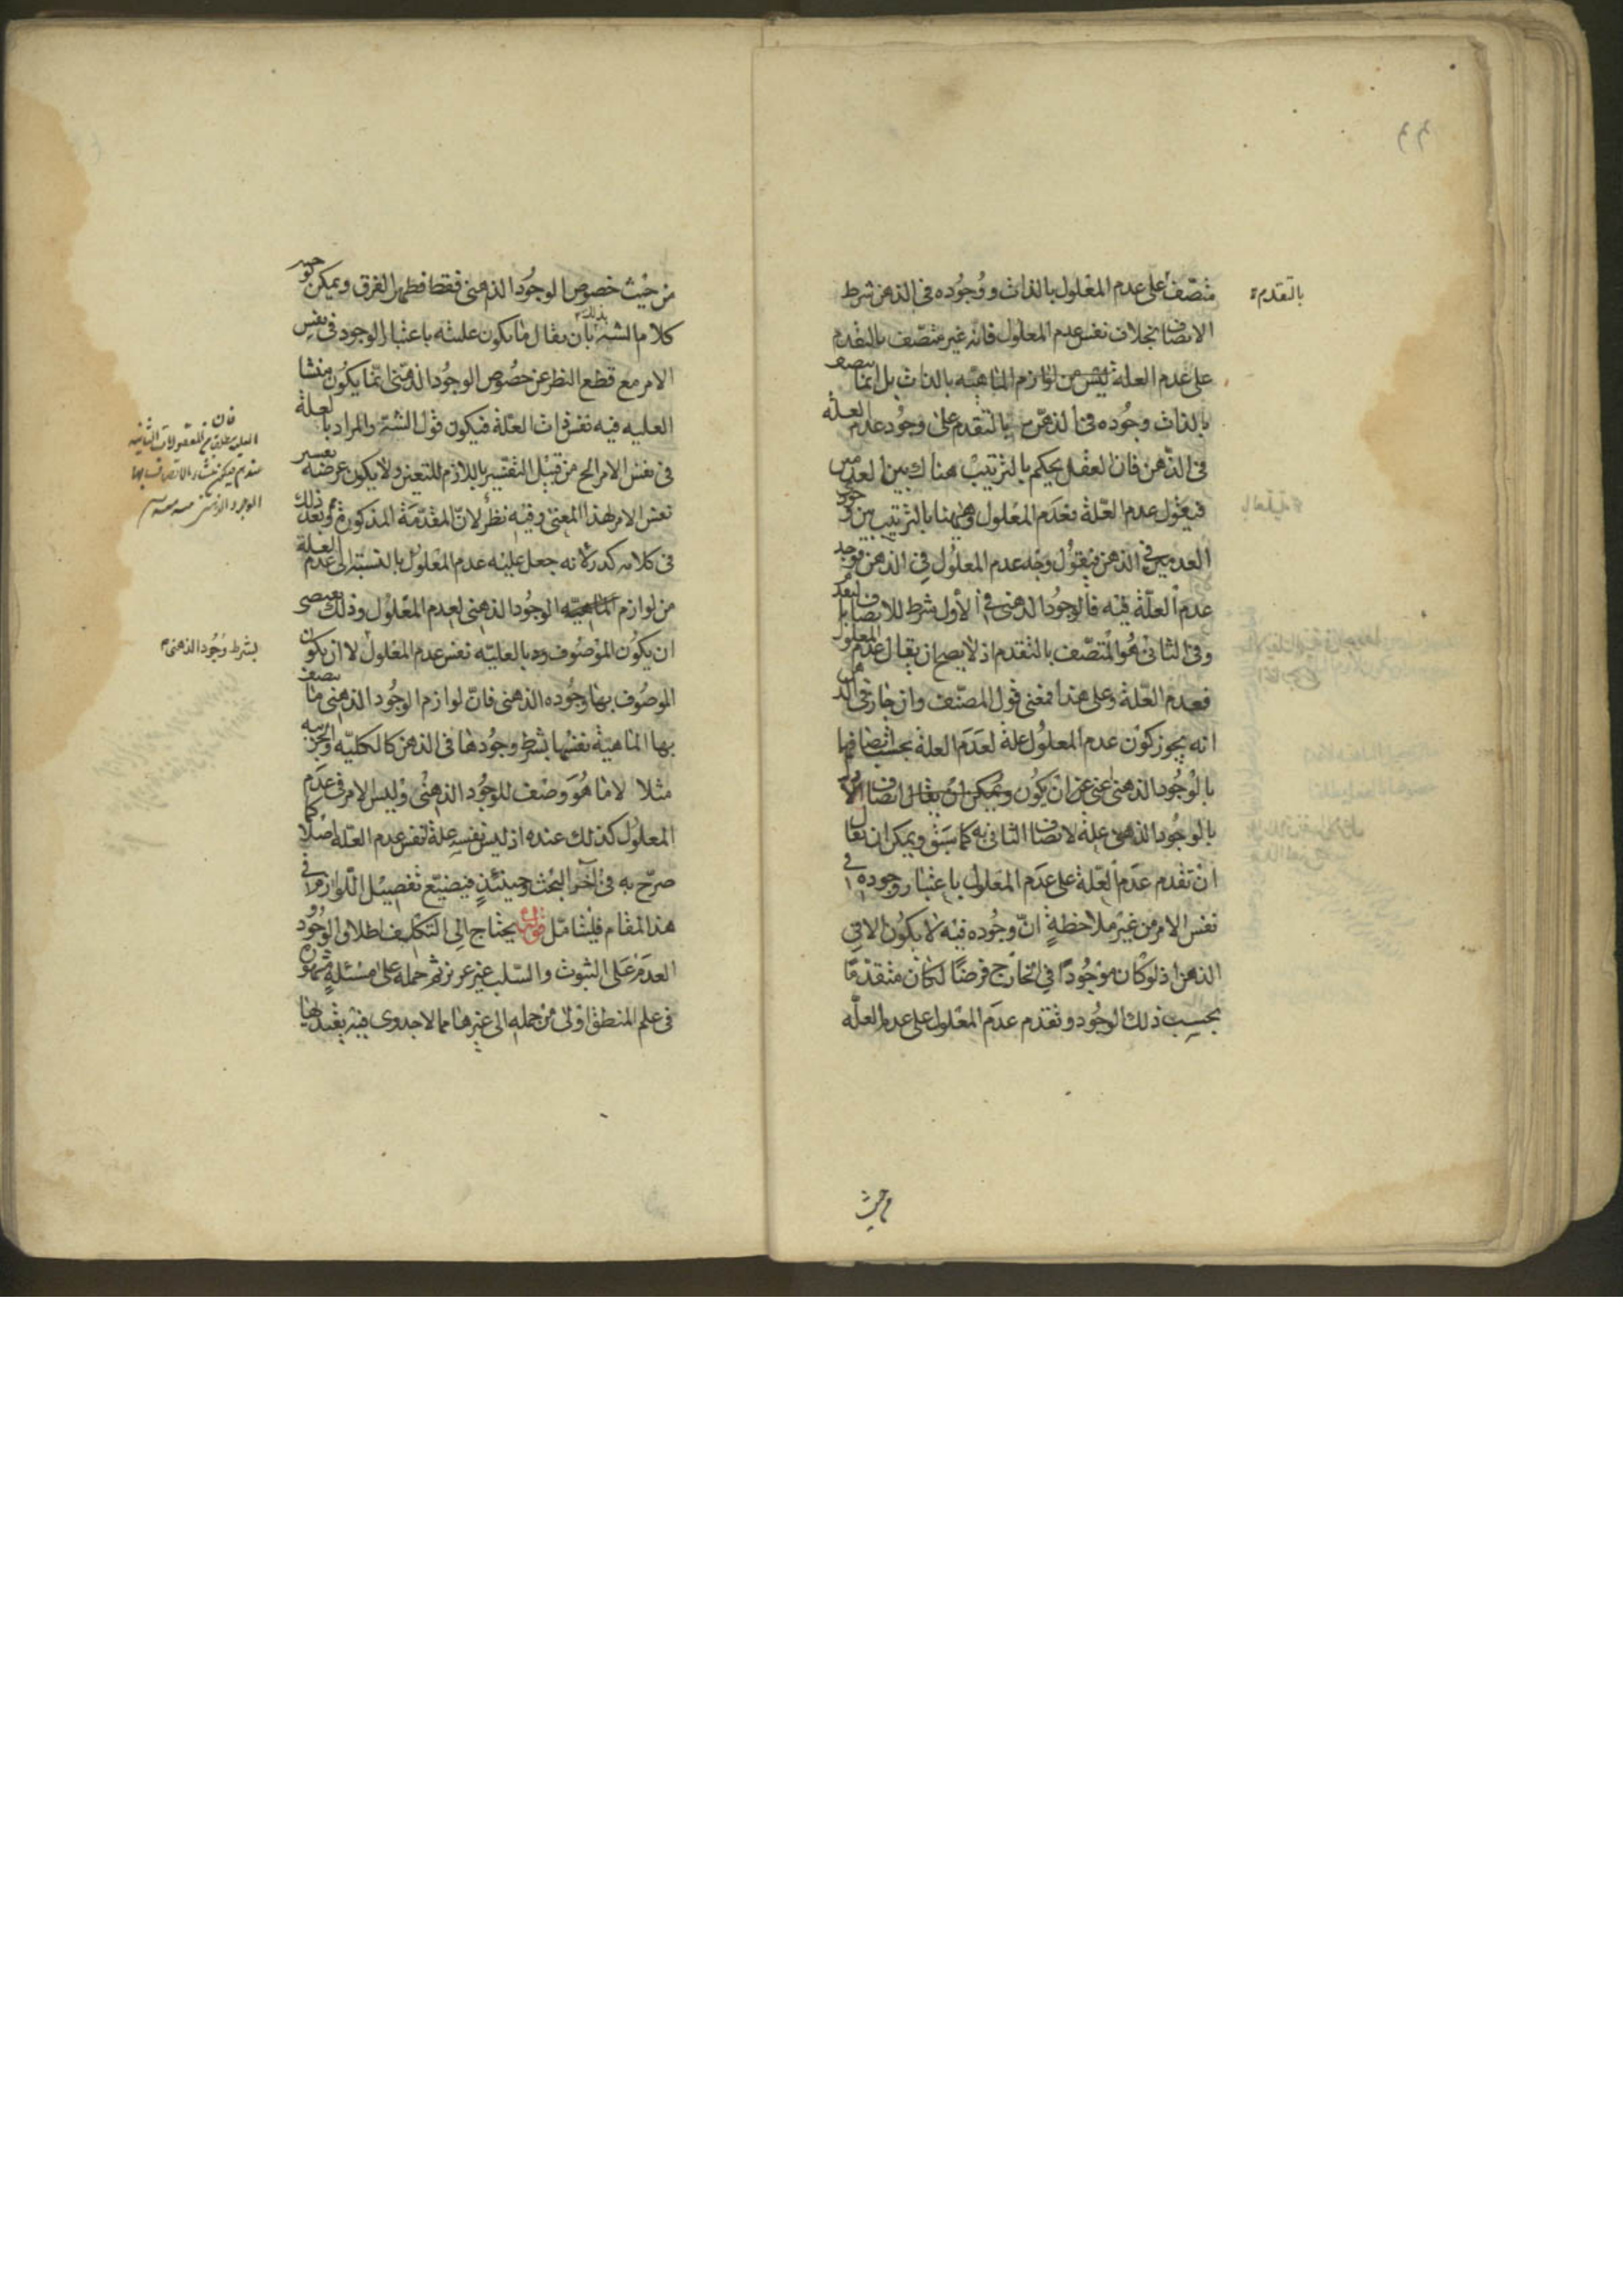 متصف على عدم المعلول بالذات ووجوده في الذهن شرط
بالتقدم
الاتصاف بخلاف نفس عدم المعلول فانه غير متصف بالتقدم
على عدم العلة ليس من لوازم الماهيه بالذات بل انما يتصف
بالذات وجوده في الذهن بالتقدم على وجود عدم العلة
في الذهن فان العقل يحكم بالترتيب هناك بين العدمين
فيقول عدم العلة فعدم المعلول وههنا بالترتيب بين وجود
العدمين في الذهن فيقول وجد عدم المعلول في الذهن فوجد
عدم العلة فيه فالوجود الذهني في الأول شرط للاتصاف بالتقدم
وفي الثاني هو المتصف بالتقدم اذ لا يصح ان يقال عدم المعلول
فعدم العلة وعلى هذا فمعنى قول المصنف وان جاز في الذهن
انه يجوز كون عدم المعلول علة لعدم العلة بحسب اتصافهما
بالوجود الذهني اعني عن ان يكون ويمكن ان يقال اتصاف الأول
بالوجود الذهني علة لاتصاف الثاني به كما سبق ويمكن ان يقال
ان تقدم عدم العلة على عدم المعلول باعتبار وجوده في
نفس الامر من غير ملاحظة ان وجوده فيه لا يكون الا في
الذهن اذ لو كان موجودا في الخارج فرضا لكان متقدما
بحسب ذلك الوجود وتقدم عدم المعلول على عدم العلة
من حيث
من حيث خصوص الوجود الذهني فقط فظهر الفرق ويمكن توجيه
كلام الشه بذلك بان يقال ما يكون عليته باعتبار الوجود في نفس
الامر مع قطع النظر عن خصوص الوجود الذهني انما يكون منشا
العليه فيه نفس ذات العلة فيكون قول الشه والمراد بالعلة
في نفس الامر الخ من قبيل التفسير باللازم للتعين ولا يكون غرضه تفسير
نفس الامر لهذا المعنى وفيه نظر لان المقدمة المذكورة بعد ذلك
في كلامه كدر لانه جعل عليه عدم المعلول بالنسبة الى عدم العلة
من لوازم الماهيه الوجود الذهني لعدم المعلول وذلك يقتضي
ان يكون الموصوف بالعليه نفس عدم المعلول لا ان يكون
بشرط وجود الذهني
الموصوف بها وجوده الذهني فان لوازم الوجود الذهني ما يتصف
بها الماهية نفسها بشرط وجودها في الذهن كالكليه والجزئيه
مثلا لا ما هو وصف للوجود الذهني وليس الامر في عدم
المعلول كذلك عنده اذ ليس نفسه علة لنفس عدم العله اصلا كما
صرح به في آخر البحث وحينئذ فيضيع تفصيل اللوازم في
هذا المقام فليتامل قوله يحتاج الى التكلف اطلاق الوجود
العدم على الثبوت والسلب غير عزيز ثم حمله على مسئلة مشهورة
في علم المنطق اولى من حمله الى غيرها مما لا جدوى فيه يعتد بها